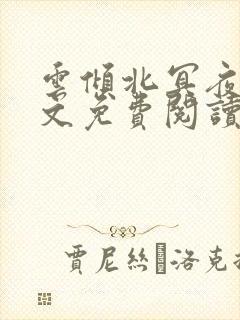 雲傾北冥夜
文免費閱讀
賈尼絲 洛克